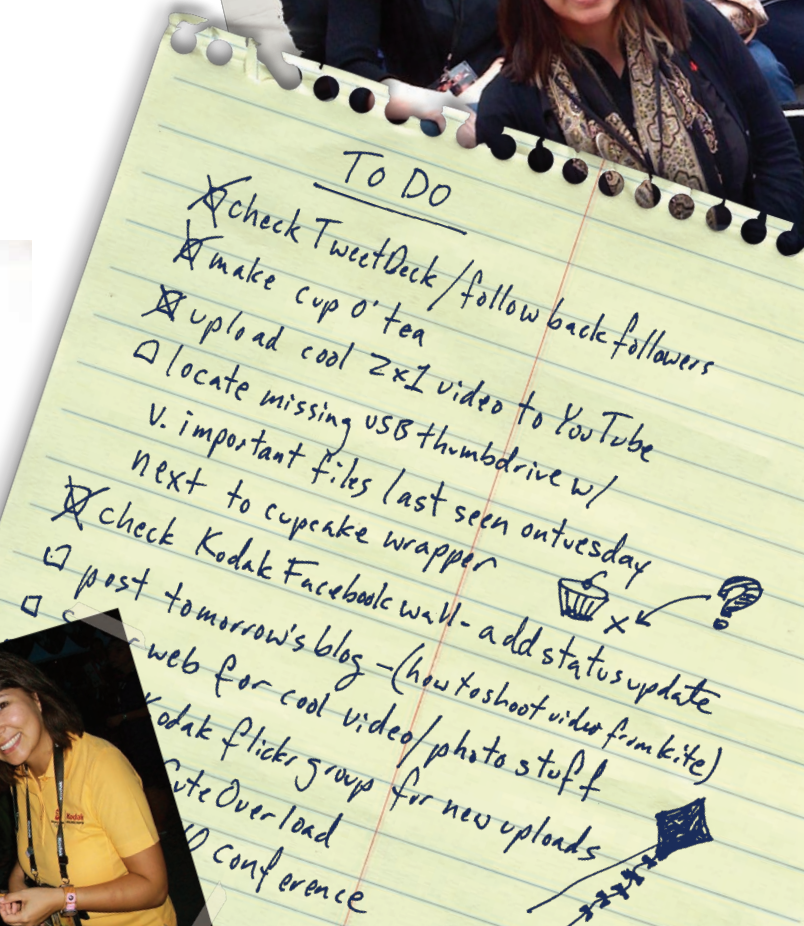 TO DO
check TweetDeck/follow back followers
make cup o' tea
upload cool 2x1 video to YouTube
locate missing USB thumbdrive w/
v. important files last seen ontuesday
next to cupcake wrapper
?
x
check Kodak Facebook wall - add status update
post tomorrow's blog - (how to shoot video from kite)
web for cool video/photo stuff
Kodak flickr group for new uploads
Cute Overload
conference
Kodak